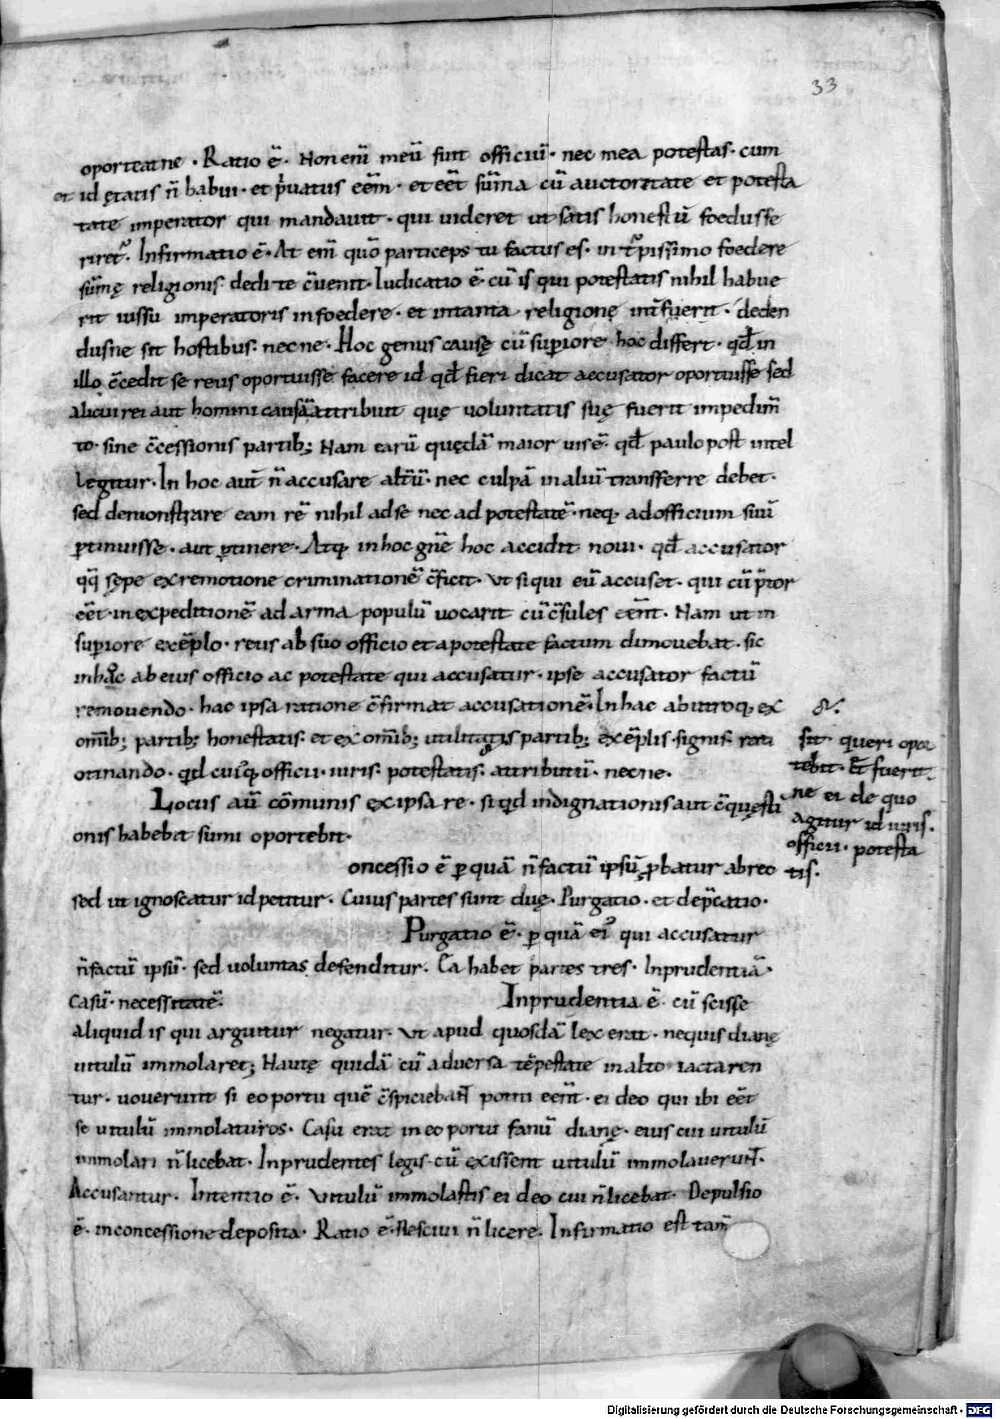 33
oporteatne · Ratio ē · Non enī meū fuit officiū · nec mea potestas · cum
et id ętatis n̄ habui · et p̓uatus eēm · et eēt sūma cū auctoritate et potesta
tate imperator qui mandauit · qui uideret ut satis honestū foedus fe
riret᷑ · Infirmatio ē · At enī quō particeps tu factus es · in t᷑pissimo foedere
sūmę religionis · dedi te c̄uenit · Iudicatio ē · cū is qui potestatis nihil habue
rit iussu imperatoris in foedere · et in tanta religionę int̄fuerit · deden
dusne sit hostibus · necne · Hoc genus causę cū supiore · hoc differt · qd̄ in
illo c̄cedit se reus oportuisse facere id qd̄ fieri dicat accusator oportuisse sed
alicui rei aut homini causā attribuit quę uoluntatis suę fuerit impedim̄
to · sine c̄cessionis partib; Nam earū quędā maior uis ē · qd̄ paulo post intel
legitur · In hoc aut̄ n̄ accusare alt̄ū · nec culpā in aliū transferre debet ·
sed demonstrare eam rē nihil ad se nec ad potestatē · neq; ad officium suū
ꝑtinuisse · aut ꝑtinere · Atq; in hoc gn̄e hoc accidit noui · qd̄ accusator
qq̄ sępe ex remotione criminationē c̄ficit · Vt siqui eū accuset · qui cū p̄tor
eēt · in expeditionē ad arma populū uocarit cū c̄sules eēnt · Nam ut in
supiore exēplo · reus ab suo officio et a potestate factum dimouebat · sic
in hoc ab eius officio ac potestate qui accusatur · ipse accusator factū
remouendo · hac ipsa ratione c̄firmat accusationē · In hac ab utroq; ex
om̄ib; partib; honestatis · et ex om̄ib; utilitatis partib; exēplis · signis · rati
otinando · qd cuiq; officii · iuris · potestatis · attributū · necne ·
sit · queri opor
tebit · Et fuerit
ne ei de quo
agitur id iuris ·
officii · potesta
tis ·
Locus aū cōmunis ex ipsa re · si qd indignationis aut c̄quęsti
onis habebit sumi oportebit ·
oncessio ē ꝑ quā n̄ factū ipsū ꝓbatur ab reo
sed ut ignoscatur id petitur · Cuius partes sunt duę · Purgatio · et dep̄catio ·
Purgatio ē · ꝑ quā ei᷒ qui accusatur
n̄ factū ipsū · sed uoluntas defenditur · Ea habet partes tres · Inprudentiā ·
Casū · necessitatē ·
Inprudentia ē · cū scisse
aliquid is qui arguitur negatur · Vt apud quosdā lex erat · nequis dianę
uitulū immolaret; Nautę quidā cū aduersa tēpestate in alto iactaren
tur · uouerunt si eo portu quē c̄spiciebant potiti eēnt · ei deo qui ibi eēt
se uitulū immolaturos · Casu erat in eo portu fanū dianę · eius cui uitulū
immolari n̄ licebat · Inprudentes legis · cū exissent uitulū immolauerunt ·
Accusantur · Intentio ē · Vitulū immolastis ei deo cui n̄ licebat · Depulsio
ē · in concessione deposita · Ratio ē · Nesciui n̄ licere · Infirmatio est tam̄
Digitalisierung gefördert durch die Deutsche Forschungsgemeinschaft - DFG